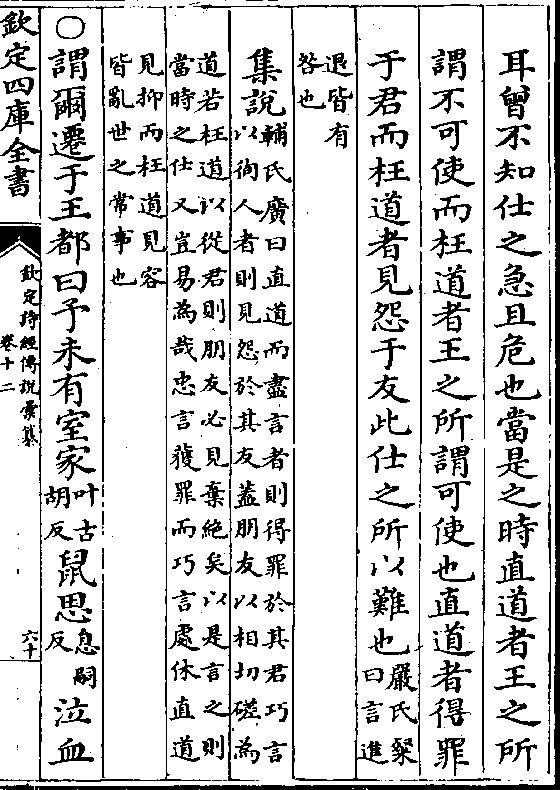 耳曾不知仕之急且危也當是之時直道者王之所
謂不可使而枉道者王之所謂可使也直道者得罪
于君而枉道者見怨于友此仕之所以難也
嚴氏粲
曰言進
退皆有
咎也
集說
輔氏廣曰直道而盡言者則得罪於其君巧言
以徇人者則見怨於其友葢朋友以相切磋為
道若枉道以從君則朋友必見棄絕矣以是言之則
當時之仕又豈易為哉忠言獲罪而巧言處休直道
見抑而枉道見容
皆亂世之常事也
○謂爾遷于王都曰予未有室家
叶古
胡反
鼠思
息嗣
反
泣血
欽定四庫全書
欽定詩經傳說彚纂
卷十二
六十